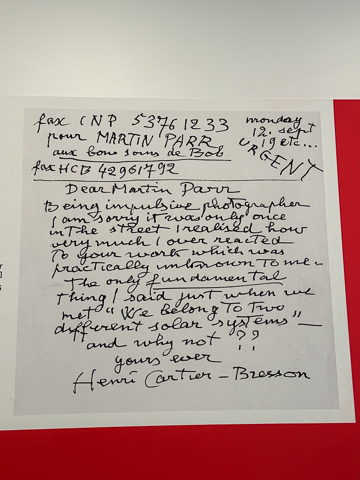 fax CNP 53761233
monday
12. sept
19 etc...
URGENT
pour MARTIN PARR
aux bons soins de Bob
fax HCB 42961792
Dear Martin Parr
Being impulsive photographer
I am sorry it was only once
in the street I realised how
very much I over reacted
to your work which was
practically unknown to me –
The only fundamental
thing I said just when we
met "We belong to two
different solar systems" —
and why not ??
yours ever
Henri Cartier-Bresson